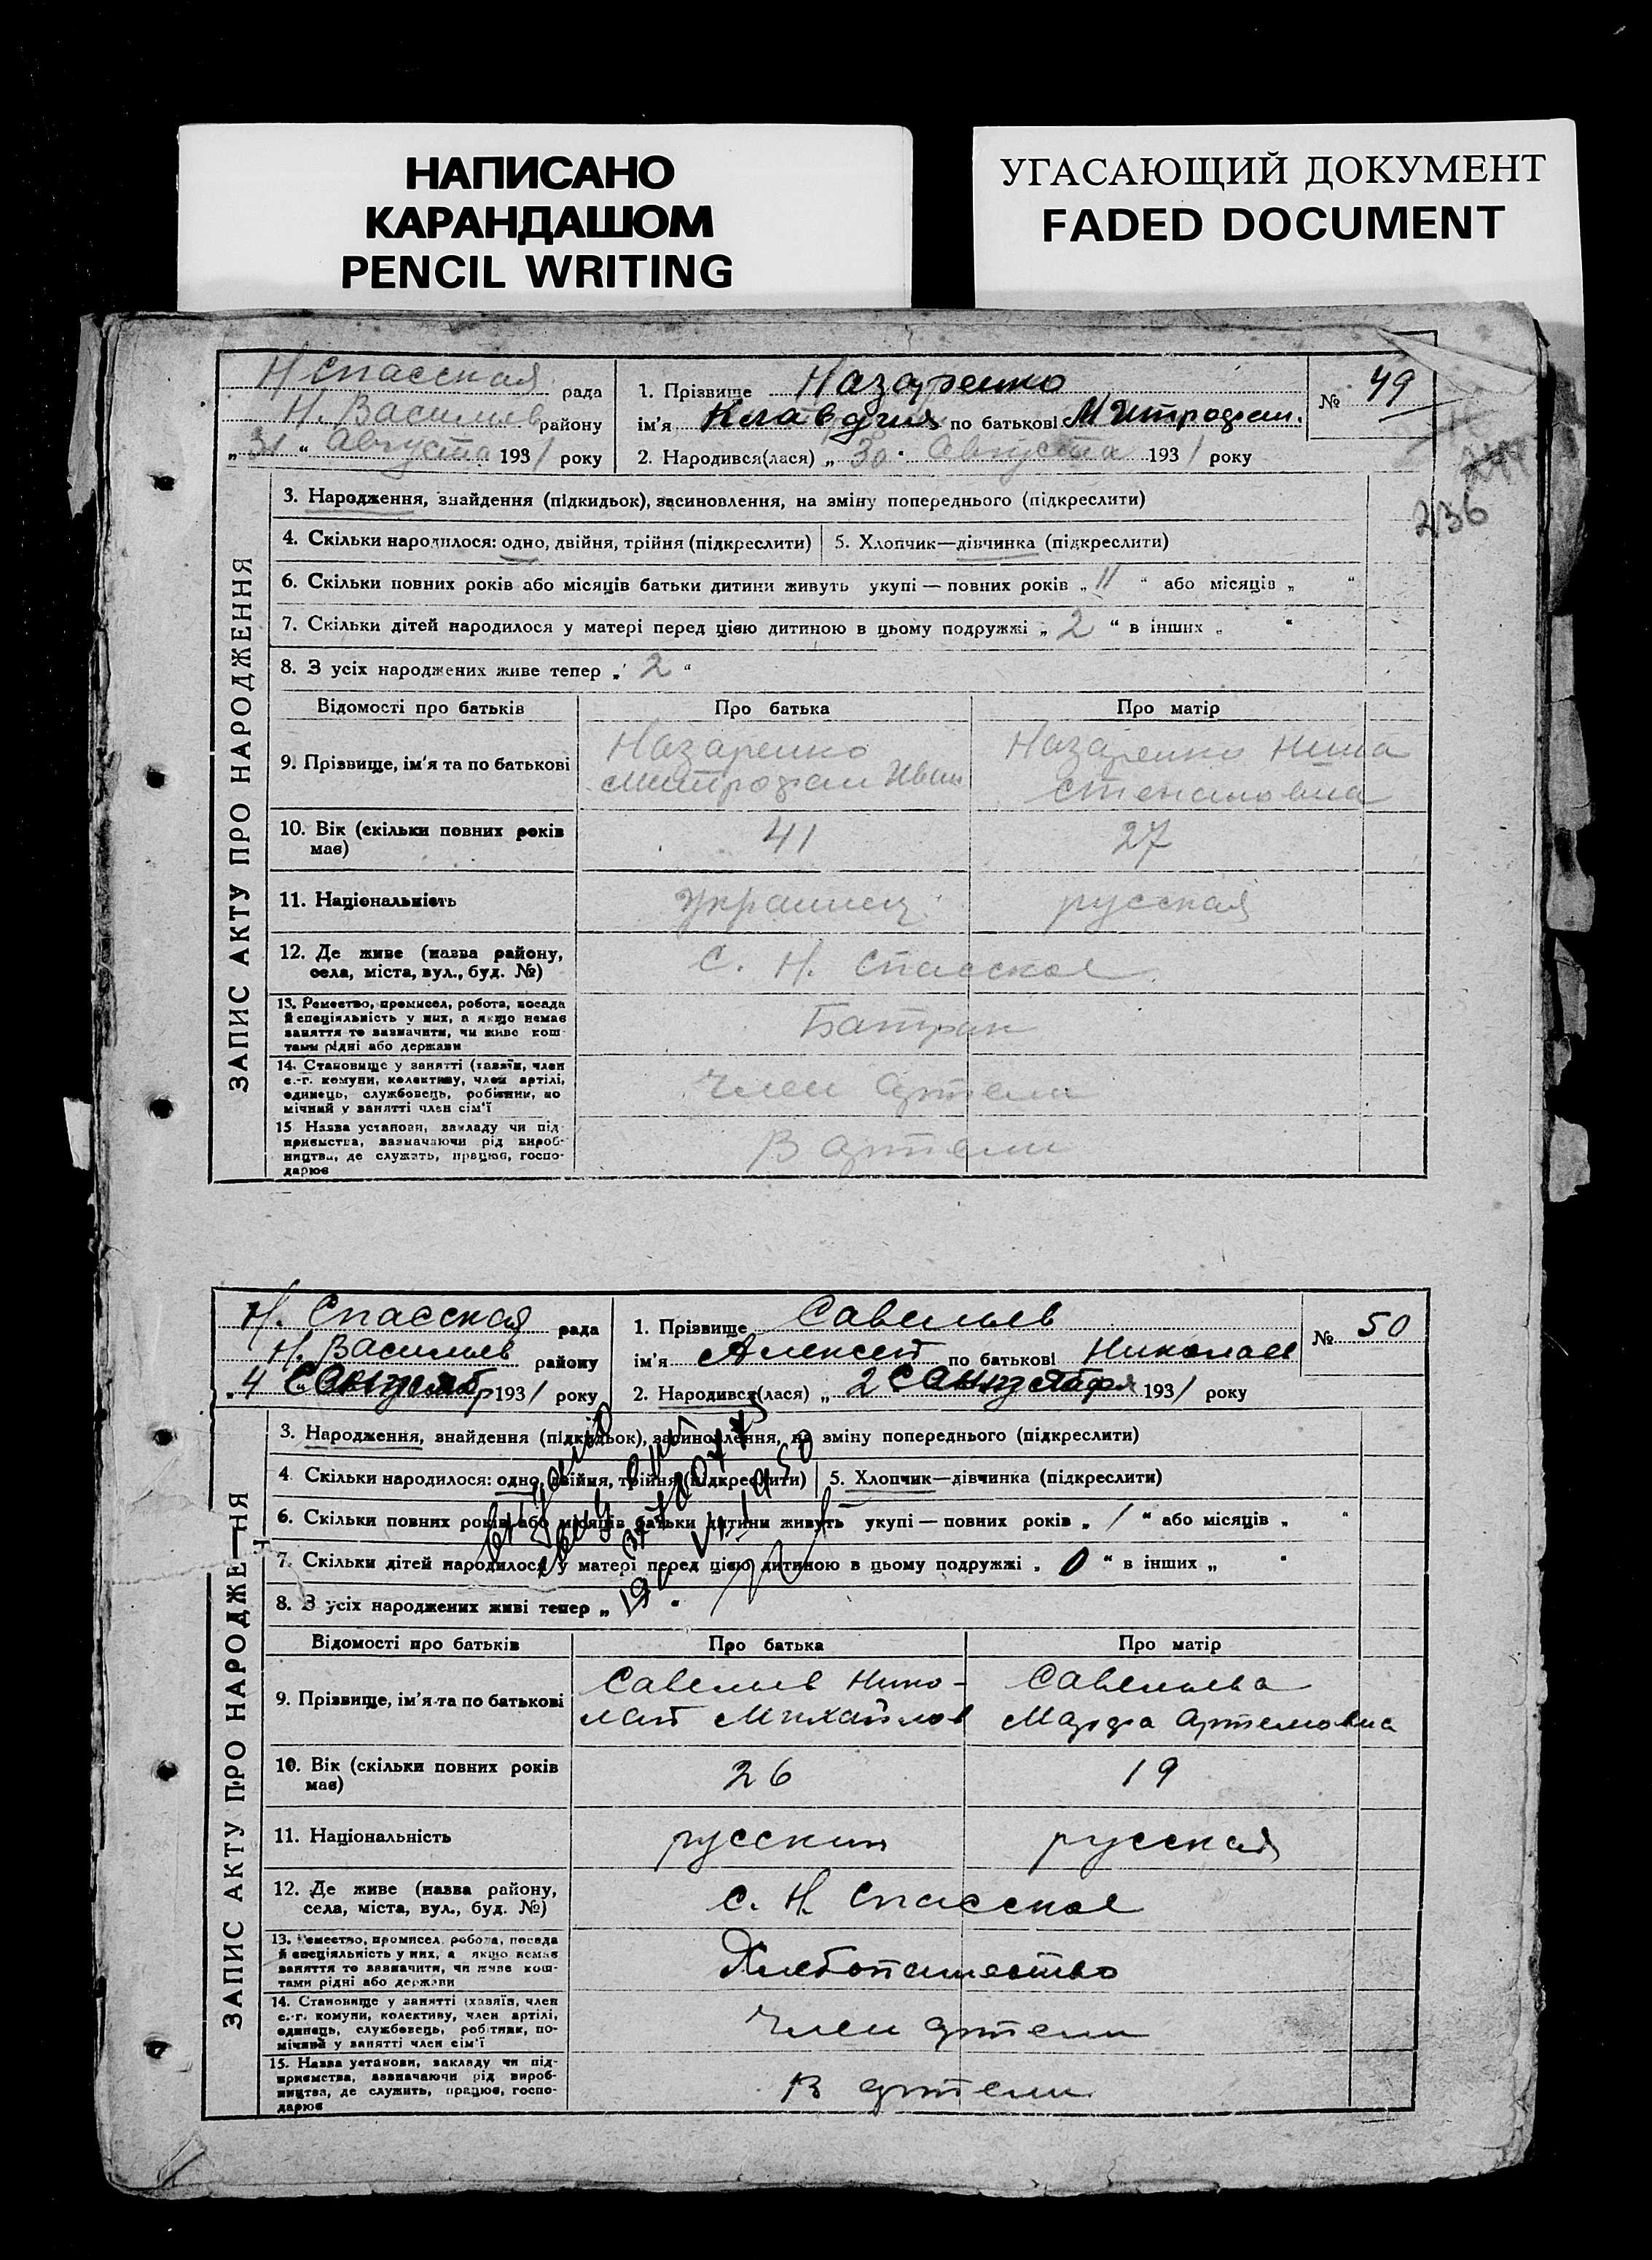 НАПИСАНО
КАРАНДАШОМ
PENCIL WRITING
УГАСАЮЩИЙ ДОКУМЕНТ
FADED DOCUMENT
Н Спасская рада
Н. Васильев району
„ 31 “ Августа 1931 року
1. Прізвище Назаренко
ім'я Клавдия по батькові Митрофан.
2. Народився(лася) „ 30 “ Августа 1931 року
№ 49
236
ЗАПИС АКТУ ПРО НАРОДЖЕННЯ
3. Народження, знайдення (підкидьок), засиновлення, на зміну попереднього (підкреслити)
4. Скільки народилося: одно, двійня, трійня (підкреслити) 5. Хлопчик—дівчинка (підкреслити)
6. Скільки повних років або місяців батьки дитини живуть укупі — повних років „ 11 “ або місяців „ “
7. Скільки дітей народилося у матері перед цією дитиною в цьому подружжі „ 2 “ в інших „ “
8. З усіх народжених живе тепер „ 2 “
Відомості про батьків Про батька Про матір
9. Прізвище, ім'я та по батькові
Назаренко
Митрофан Иван
Назаренко Нина
Степановна
10. Вік (скільки повних років
має)
41 27
11. Національність украинец русская
12. Де живе (назва району,
села, міста, вул., буд. №)
С. Н. Спасское
13. Ремество, промисел, робота, посада
й спеціяльність у них, а якщо немає
заняття то зазначити, чи живе кош-
тами рідні або держави
Батрак
14. Становище у занятті (хазяїн, член
с.-г. комуни, колективу, член артілі,
одинець, службовець, робітник, по
мічний у занятті член сім'ї
Член артели
15 Назва установи, закладу чи під-
приємства, зазначаючи рід вироб-
ництва, де служить, працює, госпо-
дарює
В артели
Н. Спасская рада
Н. Васильев району
„ 4 Сентябр 1931 року
1. Прізвище Савельев
ім'я Алексей по батькові Николаев
2. Народився(лася) „ 2 Сентября 1931 року
№ 50
ЗАПИС АКТУ ПРО НАРОДЖЕННЯ
3. Народження, знайдення (підкидьок), засиновлення, на зміну попереднього (підкреслити)
4. Скільки народилося: одно, двійня, трійня (підкреслити) 5. Хлопчик—дівчинка (підкреслити)
6. Скільки повних років або місяців батьки дитини живуть укупі — повних років „ 1 “ або місяців „ “
7. Скільки дітей народилося у матері перед цією дитиною в цьому подружжі „ 0 “ в інших „ “
8. З усіх народжених живі тепер „ “
Відомості про батьків Про батька Про матір
9. Прізвище, ім'я та по батькові
Савельев Нико-
лай Михайлов
Савельева
Марфа Артемовна
10. Вік (скільки повних років
має)
26 19
11. Національність русский русская
12. Де живе (назва району,
села, міста, вул., буд. №)
С. Н. Спасское
13. Ремество, промисел, робота, посада
й спеціяльність у них, а якщо немає
заняття то зазначити, чи живе кош-
тами рідні або держави
Хлебопашество
14. Становище у занятті (хазяїн, член
с.-г. комуни, колективу, член артілі,
одинець, службовець, робітник, по-
мічний у занятті член сім'ї
Член артели
15. Назва установи, закладу чи під-
приємства, зазначаючи рід вироб-
ництва, де служить, працює, госпо-
дарює
В артели